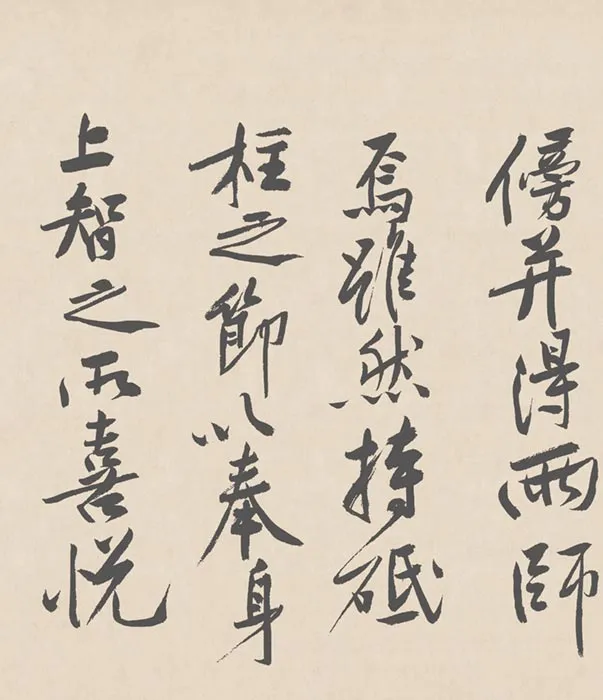 傍并得兩師
焉雖然持砥
柱之節以奉身
上智之所喜悅